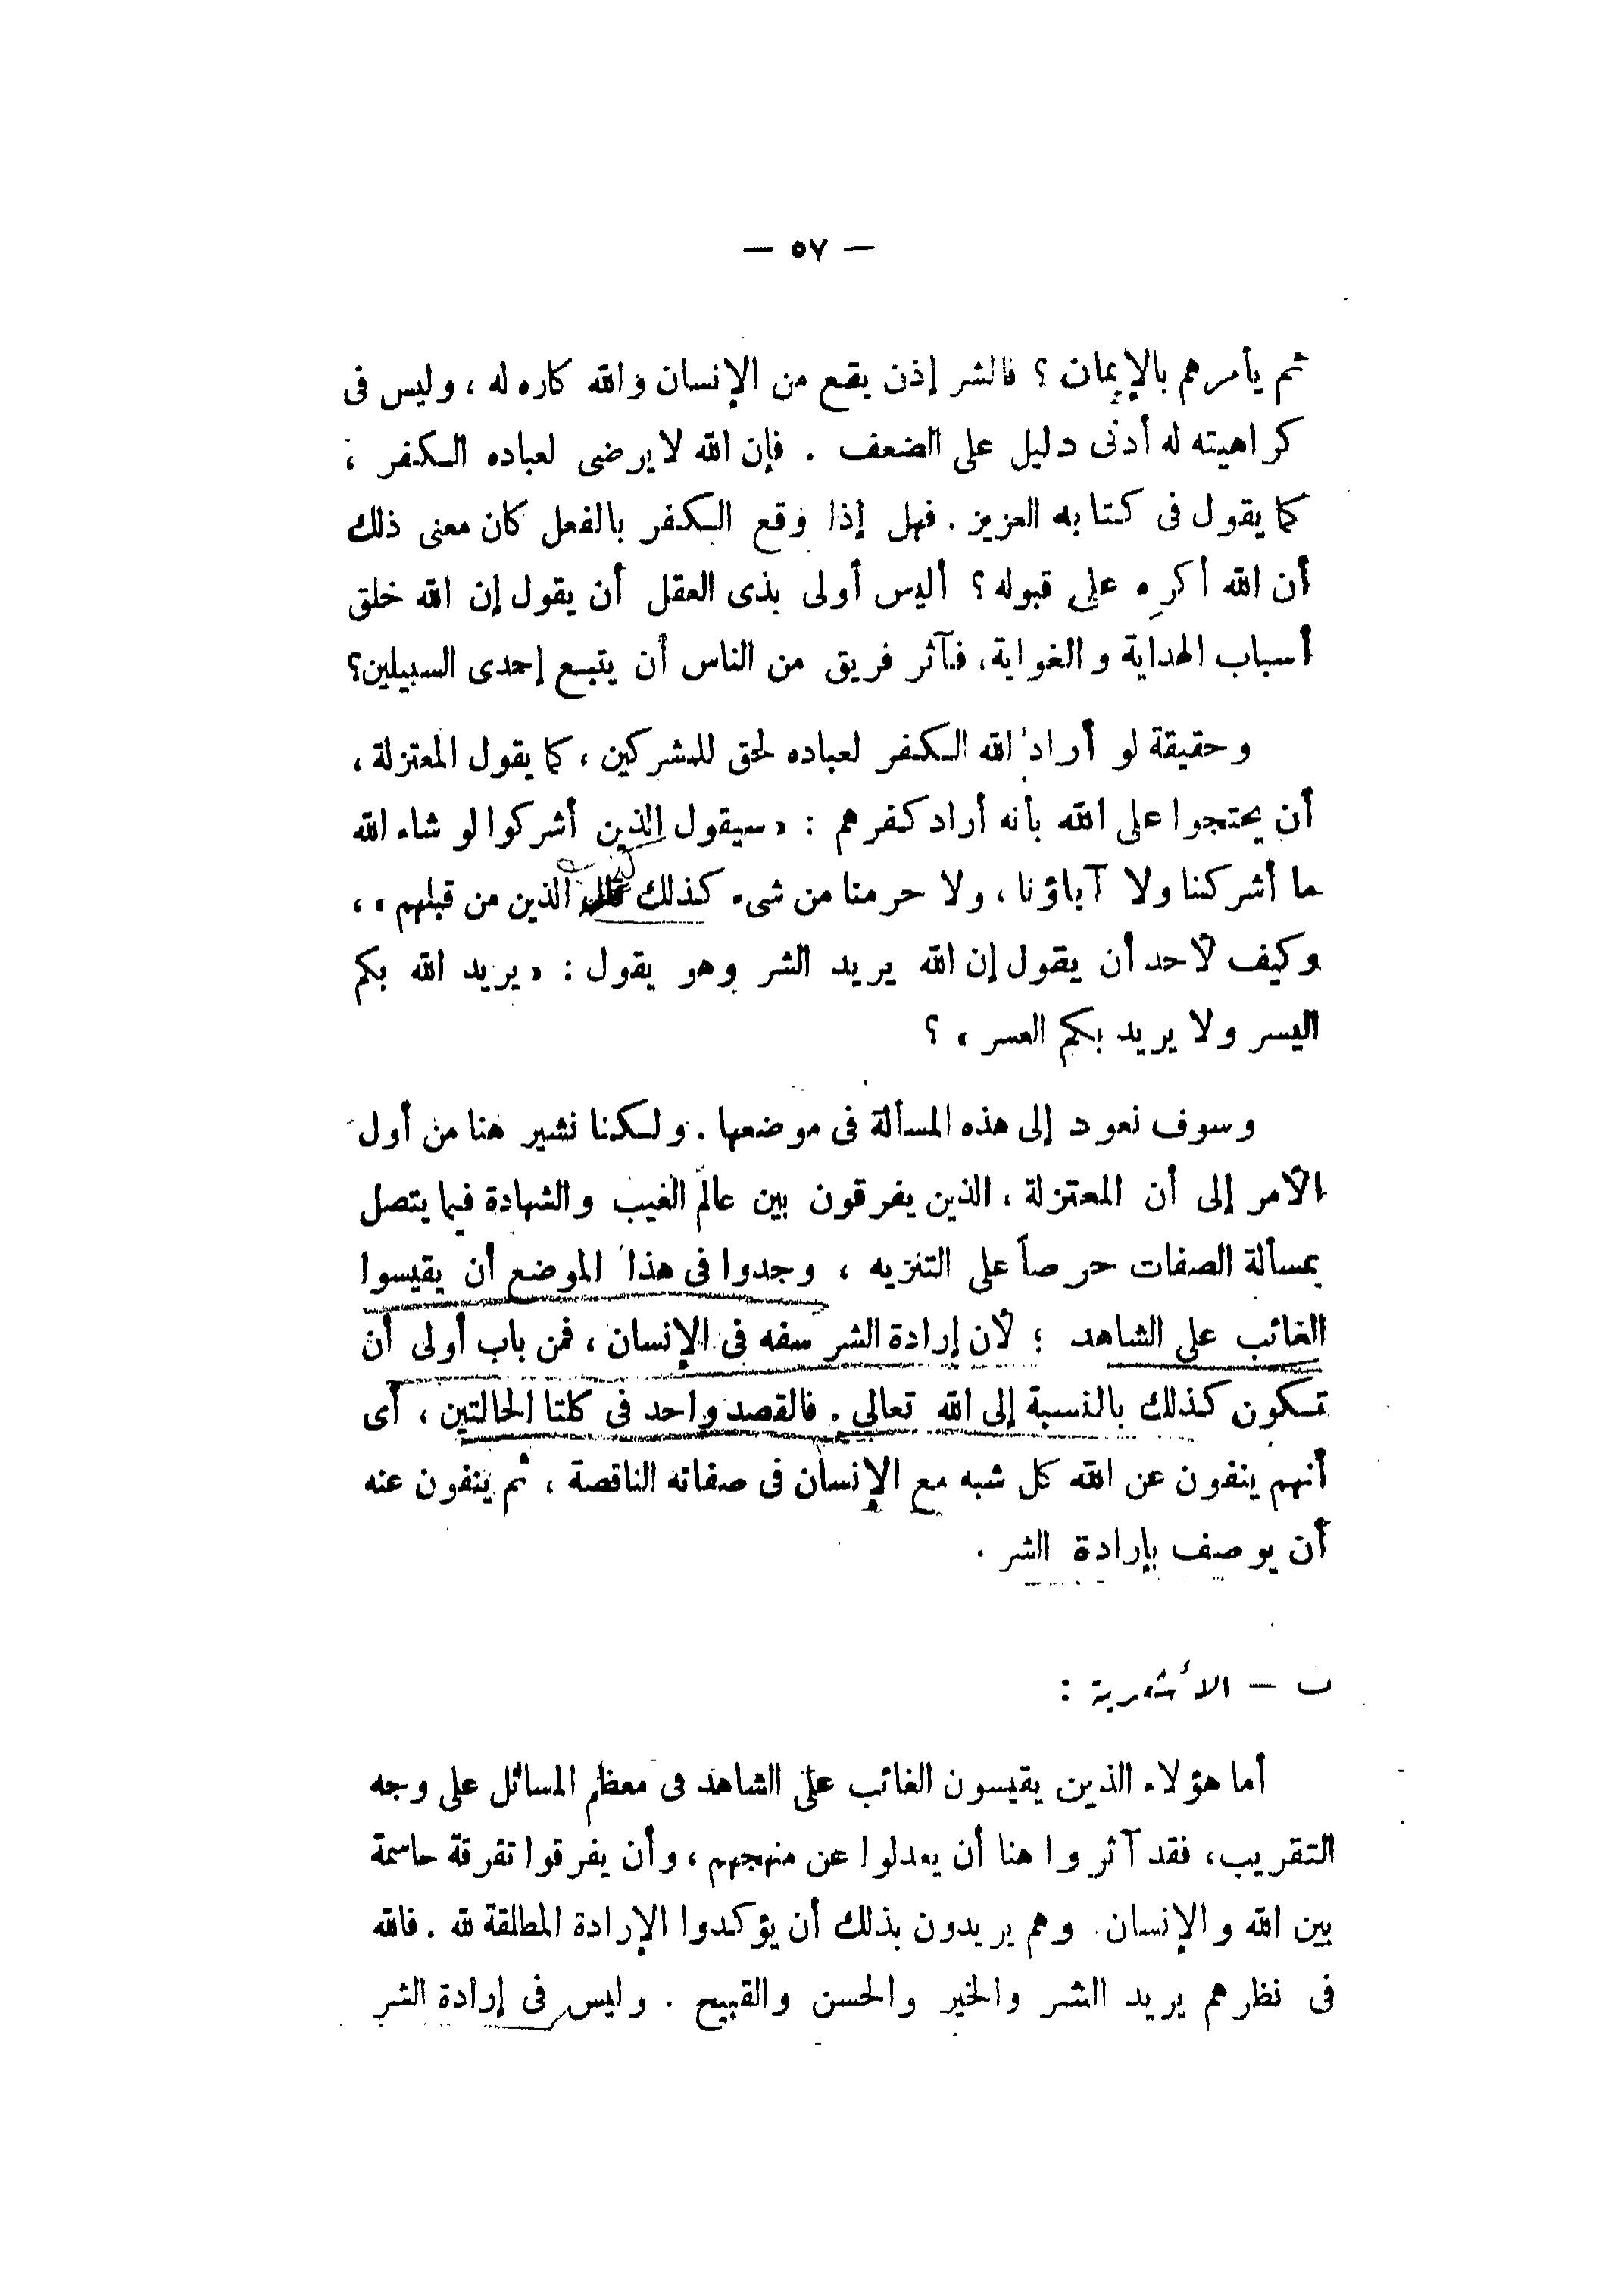 — ٥٧ —
ثم يأمرهم بالإيمان ؟ فالشر إذن يقع من الإنسان والله كاره له ، وليس فى
كراهيته له أدنى دليل على الضعف . فإن الله لا يرضى لعباده الكفر ،
كما يقول فى كتابه العزيز . فهل إذا وقع الكفر بالفعل كان معنى ذلك
أن الله أكره على قبوله ؟ أليس أولى بذى العقل أن يقول إن الله خلق
أسباب الهداية والغواية ، فآثر فريق من الناس أن يتبع إحدى السبيلين ؟
وحقيقة لو أراد الله الكفر لعباده لحق للمشركين ، كما يقول المعتزلة ،
أن يحتجوا على الله بأنه أراد كفرهم : « سيقول الذين أشركوا لو شاء الله
ما أشركنا ولا آباؤنا ، ولا حرمنا من شىء كذلك الذين من قبلهم » ،
وكيف لأحد أن يقول إن الله يريد الشر وهو يقول : « يريد الله بكم
اليسر ولا يريد بكم العسر » ؟
وسوف نعود إلى هذه المسألة فى موضعها . ولكنا نشير هنا من أول
الأمر إلى أن المعتزلة ، الذين يفرقون بين عالم الغيب والشهادة فيما يتصل
بمسألة الصفات حرصاً على التنزيه ، وجدوا فى هذا الموضع أن يقيسوا
الغائب على الشاهد ؛ لأن إرادة الشر سفه فى الإنسان ، فمن باب أولى أن
تكون كذلك بالنسبة إلى الله تعالى . فالقصد واحد فى كلتا الحالتين ، أى
أنهم ينفون عن الله كل شبه مع الإنسان فى صفاته الناقصة ، ثم ينفون عنه
أن يوصف بإرادة الشر .
ب — الأشعرية :
أما هؤلاء الذين يقيسون الغائب على الشاهد فى معظم المسائل على وجه
التقريب ، فقد آثروا هنا أن يعدلوا عن منهجهم ، وأن يفرقوا تفرقة حاسمة
بين الله والإنسان . وهم يريدون بذلك أن يؤكدوا الإرادة المطلقة لله . فالله
فى نظرهم يريد الشر والخير والحسن والقبيح . وليس فى إرادة الشر